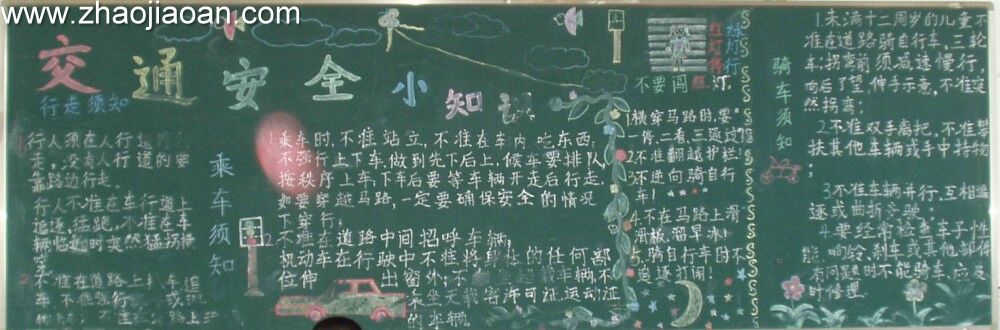 www.zhaojiaoan.com
交通安全小知识
行走须知
行人须在人行道内行
走,没有人行道的要
靠路边行走。
行人不准在车行道上
追逐、猛跑,不准在车
辆临近时突然猛拐横
穿。
不准在道路上扒车、追
车,不准强行
乘车须知
1.乘车时,不准站立,不准在车内吃东西,
不强行上下车,做到先下后上,候车要排队,
按秩序上车;下车后要等车辆开走后行走,
如要穿越马路,一定要确保安全的情况
下穿行;
2.不准在道路中间招呼车辆,
机动车在行驶中不准将身体的任何部
位伸出窗外;不
乘坐无载客许可证运动证
的车辆.
红灯停
绿灯行
不要闯红灯.
1横穿马路时,要"
一停,二看,三通过"
2.不准翻越护栏!
3.不逆向骑自行
车!
4.不在马路上滑
滑板溜旱冰!
5.骑自行车时不
要逐打闹!
骑车须知
1.未满十二周岁的儿童不
准在道路骑自行车,三轮
车;拐弯前须减速慢行,
向后了望,伸手示意,不准突
然拐弯;
2.不准双手离把,不准攀
扶其他车辆或手中持物
3.不准车辆并行、互相追
逐或曲折竞驶;
4.要经常检查车子性
能,响铃、刹车或其他部件
有问题时不能骑车,应及
时修理.